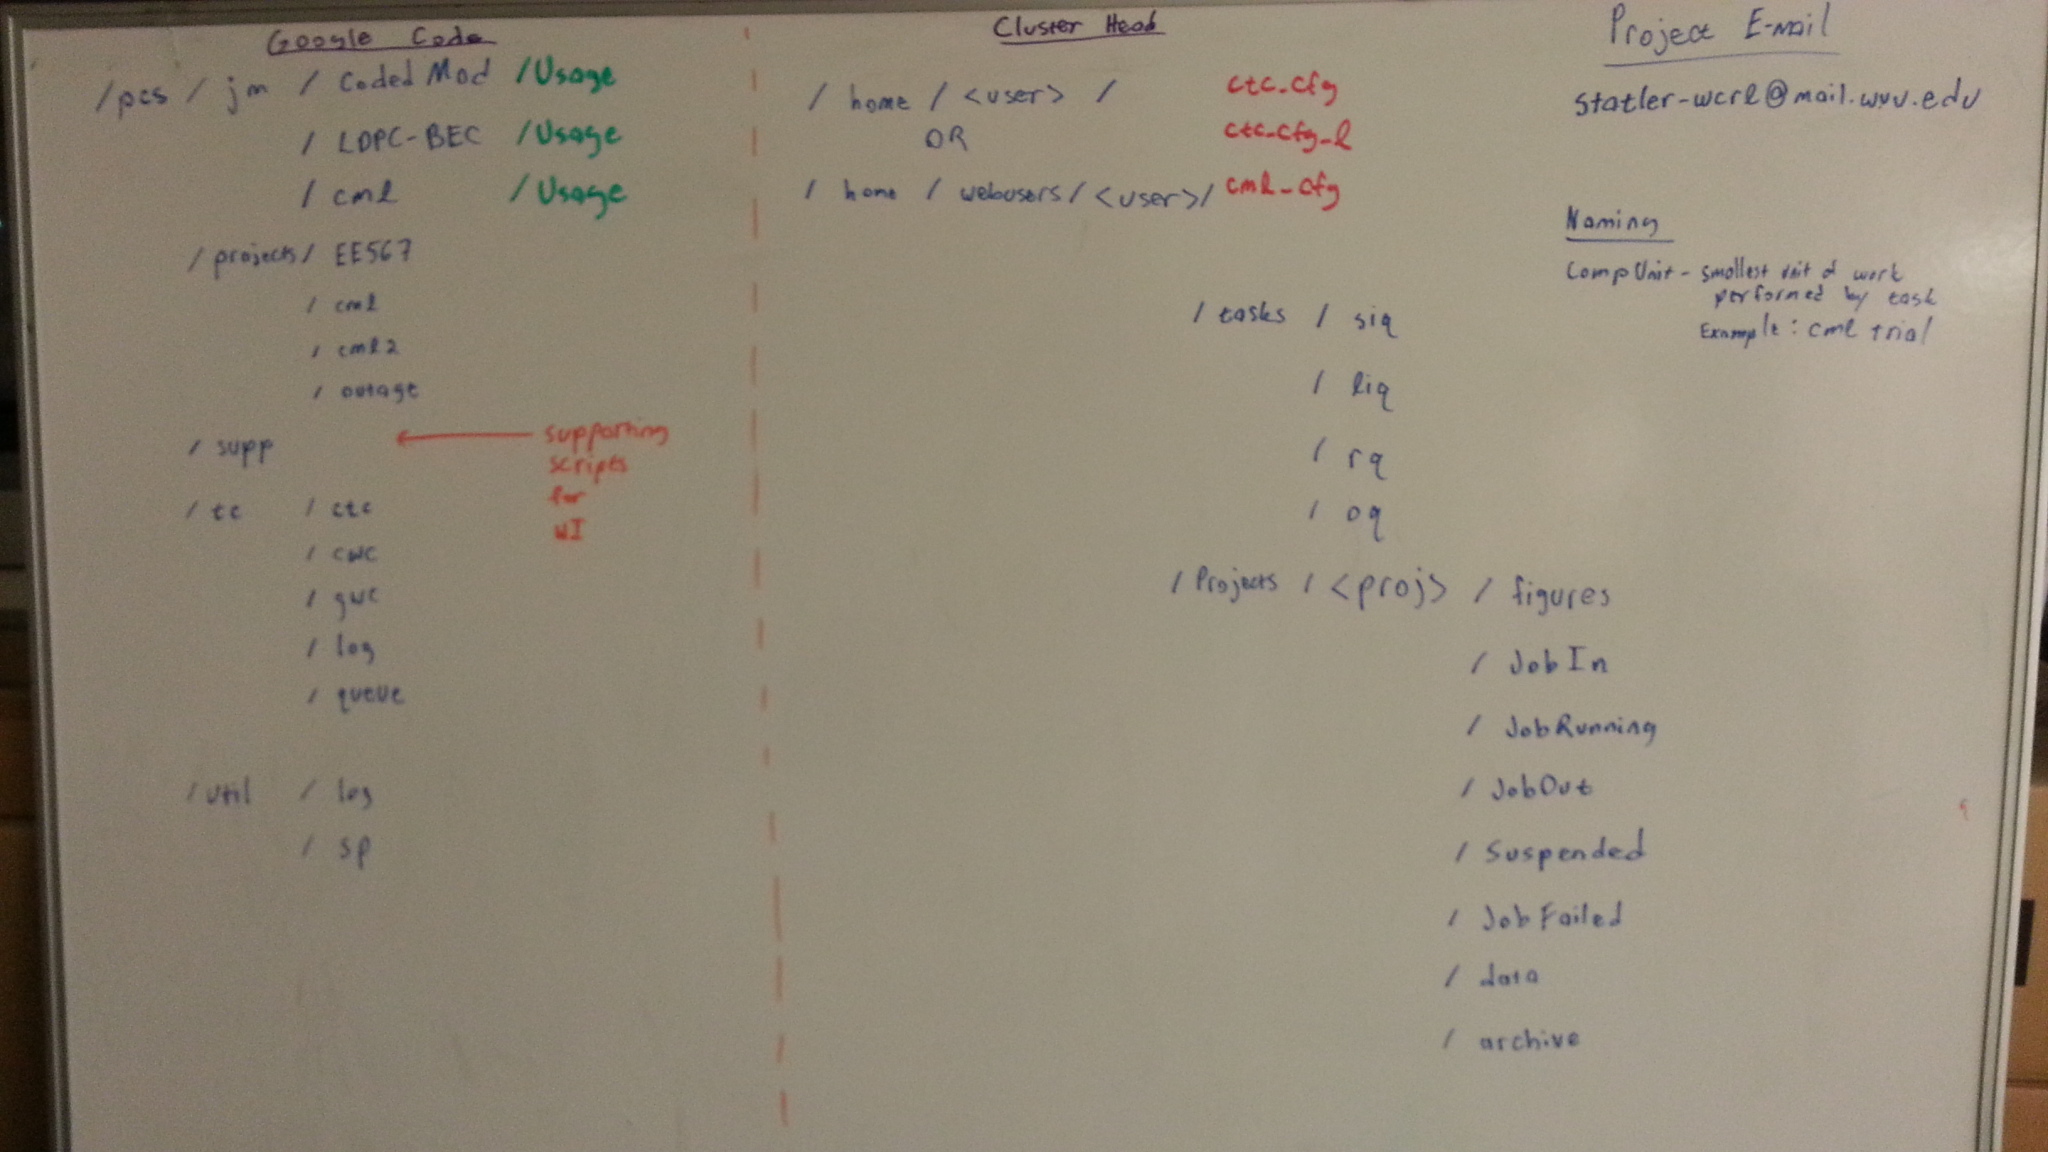 Google Code
/pcs / jm / Coded Mod /Usage
/ LDPC-BEC /Usage
/ cml /Usage
/ projects / EE567
/ cml
/ cml2
/ outage
/ supp
supporting
scripts
for
WI
/ tc / ctc
/ cwc
/ gwc
/ log
/ queue
/ util / log
/ sp
Cluster Head
/ home / <user> / ctc_cfg
OR ctc_cfg_l
/ home / webusers / <user> / cml_cfg
/ tasks / siq
/ liq
/ rq
/ oq
/ Projects / <proj> / figures
/ JobIn
/ JobRunning
/ JobOut
/ Suspended
/ JobFailed
/ data
/ archive
Project E-mail
statler-wcrl@mail.wvu.edu
Naming
CompUnit - smallest unit of work
performed by task
Example: cml trial